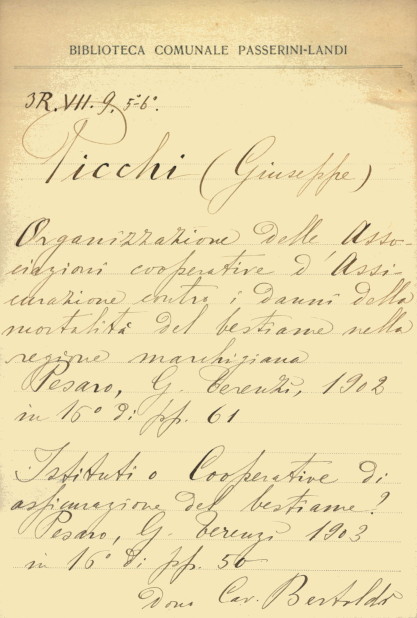 BIBLIOTECA COMUNALE PASSERINI-LANDI
3R. VII. 9, 5º-6º.
Picchi (Giuseppe)
Organizzazione delle Asso-
ciazioni cooperative d'Assi-
curazione contro i danni della
mortalità del bestiame nella
regione marchigiana
Pesaro, G. Terenzi, 1902
in 16º di pp. 61
Istituti o Cooperative di
assicurazione del bestiame?
Pesaro, G. Terenzi 1903
in 16º di pp. 50
Dono Cav. Bertoldi